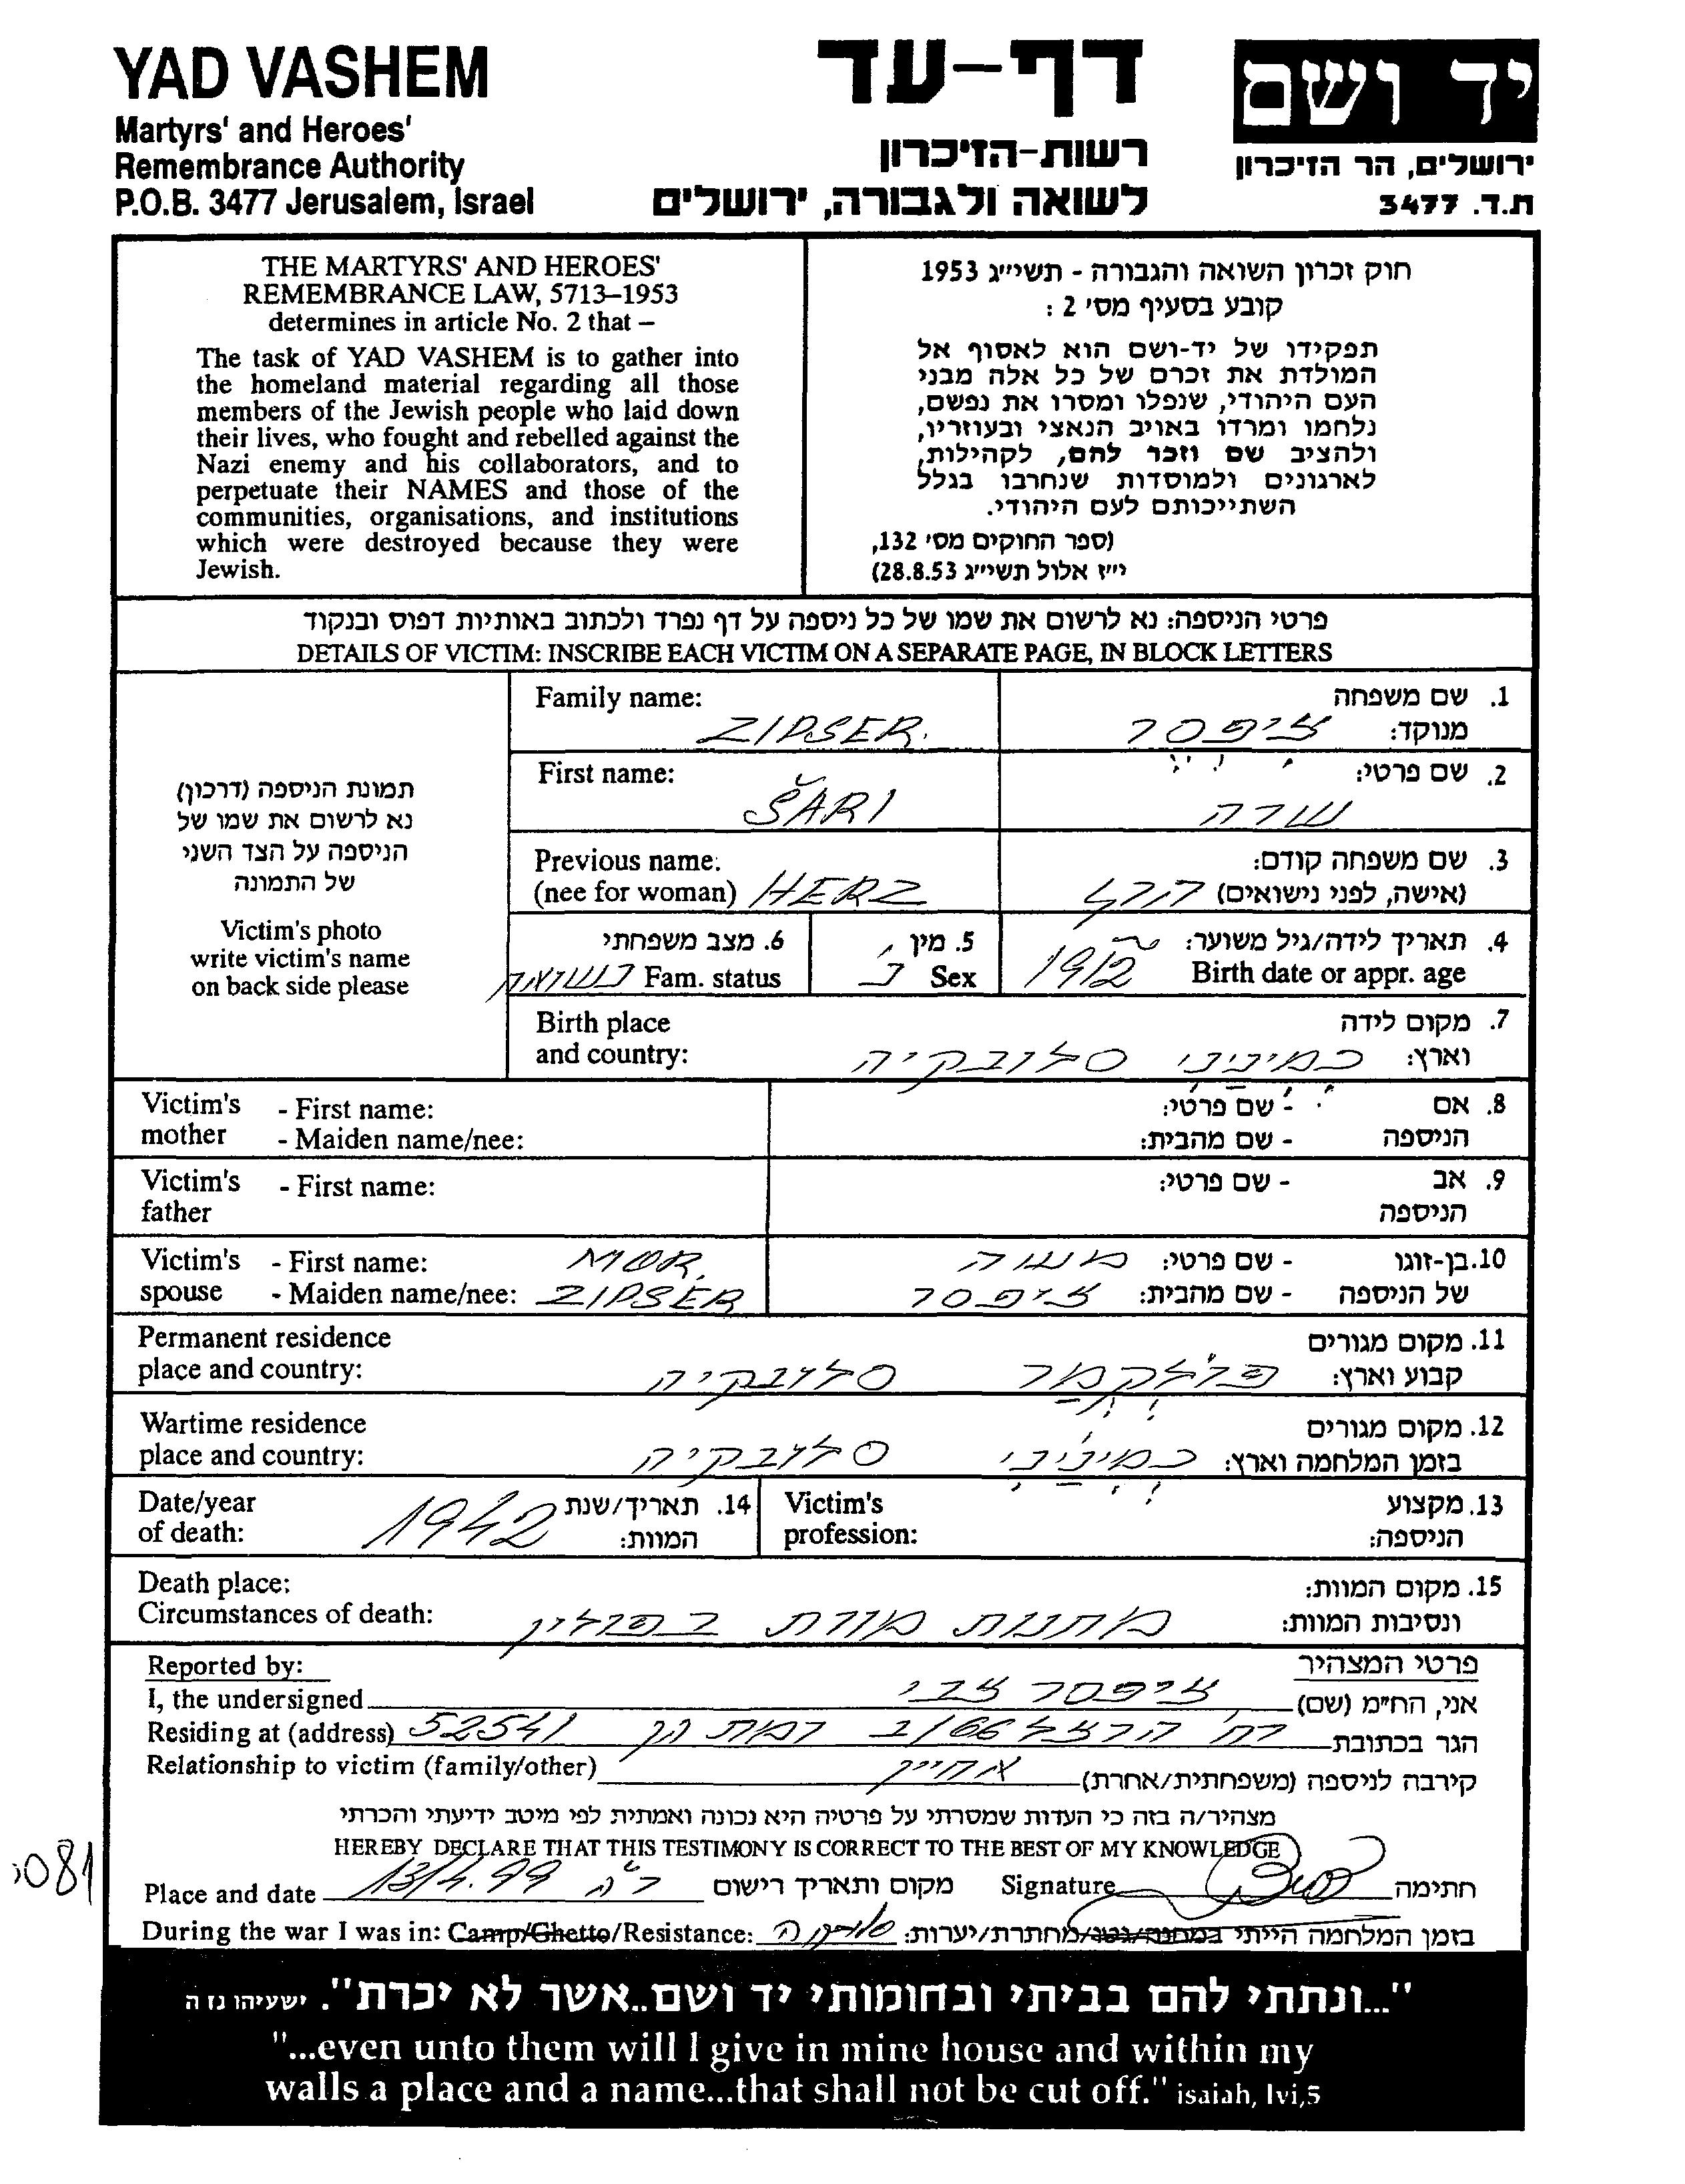 YAD VASHEM
Martyrs' and Heroes'
Remembrance Authority
P.O.B. 3477 Jerusalem, Israel
דף-עד
רשות-הזיכרון
לשואה ולגבורה, ירושלים
יד ושם
ירושלים, הר הזיכרון
ת.ד. 3477
THE MARTYRS' AND HEROES'
REMEMBRANCE LAW, 5713–1953
determines in article No. 2 that –
The task of YAD VASHEM is to gather into
the homeland material regarding all those
members of the Jewish people who laid down
their lives, who fought and rebelled against the
Nazi enemy and his collaborators, and to
perpetuate their NAMES and those of the
communities, organisations, and institutions
which were destroyed because they were
Jewish.
חוק זכרון השואה והגבורה - תשי״ג 1953
קובע בסעיף מס' 2 :
תפקידו של יד-ושם הוא לאסוף אל
המולדת את זכרם של כל אלה מבני
העם היהודי, שנפלו ומסרו את נפשם,
נלחמו ומרדו באויב הנאצי ובעוזריו,
ולהציב שם וזכר להם, לקהילות,
לארגונים ולמוסדות שנחרבו בגלל
השתייכותם לעם היהודי.
(ספר החוקים מס' 132,
י״ז אלול תשי״ג 28.8.53)
פרטי הניספה: נא לרשום את שמו של כל ניספה על דף נפרד ולכתוב באותיות דפוס ובנקוד
DETAILS OF VICTIM: INSCRIBE EACH VICTIM ON A SEPARATE PAGE, IN BLOCK LETTERS
תמונת הניספה (דרכון)
נא לרשום את שמו של
הניספה על הצד השני
של התמונה
Victim's photo
write victim's name
on back side please
Family name: ZIPSER.
1. שם משפחה
מנוקד: ציפסר
First name: ŠARI
2. שם פרטי: שרה
Previous name:
(nee for woman) HERZ
3. שם משפחה קודם:
(אישה, לפני נישואים) הרץ
6. מצב משפחתי
Fam. status נשואה
5. מין
Sex נ'
4. תאריך לידה/גיל משוער:
Birth date or appr. age 1912
Birth place
and country:
7. מקום לידה
וארץ: כמיניני סלובקיה
Victim's mother - First name:
- Maiden name/nee:
8. אם הניספה - שם פרטי:
- שם מהבית:
Victim's father - First name:
9. אב הניספה - שם פרטי:
Victim's spouse - First name: MOR.
- Maiden name/nee: ZIPSER
10. בן-זוגו של הניספה - שם פרטי: משה
- שם מהבית: ציפסר
Permanent residence
place and country:
11. מקום מגורים
קבוע וארץ: סלובקיה
Wartime residence
place and country:
12. מקום מגורים
בזמן המלחמה וארץ: כמיניני סלובקיה
Date/year
of death:
14. תאריך/שנת
המוות: 1942
Victim's
profession:
13. מקצוע
הניספה:
Death place:
Circumstances of death:
15. מקום המוות:
ונסיבות המוות: מחנות מוות בפולין
Reported by:
פרטי המצהיר
I, the undersigned ציפסר צבי אני, הח״מ (שם)
Residing at (address) רח' הרצל 66/ב רמת גן 52541 הגר בכתובת
Relationship to victim (family/other) אחיין קירבה לניספה (משפחתית/אחרת)
מצהיר/ה בזה כי העדות שמסרתי על פרטיה היא נכונה ואמתית לפי מיטב ידיעתי והכרתי
HEREBY DECLARE THAT THIS TESTIMONY IS CORRECT TO THE BEST OF MY KNOWLEDGE
Place and date ר"ג 13/4.99 מקום ותאריך רישום Signature חתימה
During the war I was in: Camp/Ghetto/Resistance: בזמן המלחמה הייתי במחנה/גטו/מחתרת/יערות:
081
"...ונתתי להם בביתי ובחומותי יד ושם..אשר לא יכרת". ישעיהו נו ה
"...even unto them will I give in mine house and within my
walls a place and a name...that shall not be cut off." isaiah, lvi,5